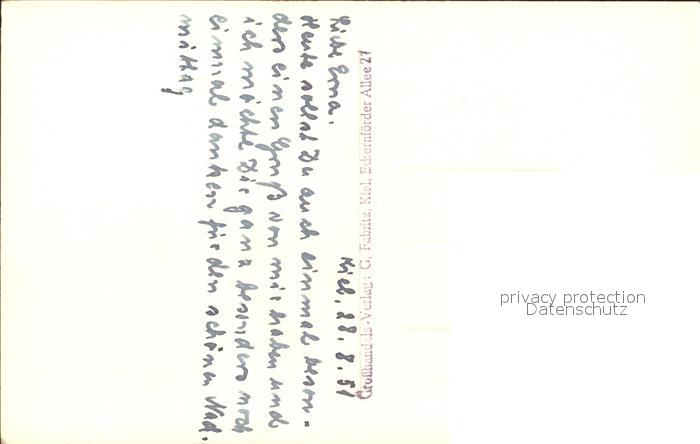 Kiel, 28. 8. 51
Liebe Erna.
Heute sollst Du auch einmal beson-
ders einen Gruß von mir haben und
ich möchte Dir ganz besonders noch
einmal danken für den schönen Nach-
mittag
Großhandels-Verlag: G. Fabritz, Kiel, Eckernförder Allee 27
privacy protection
Datenschutz